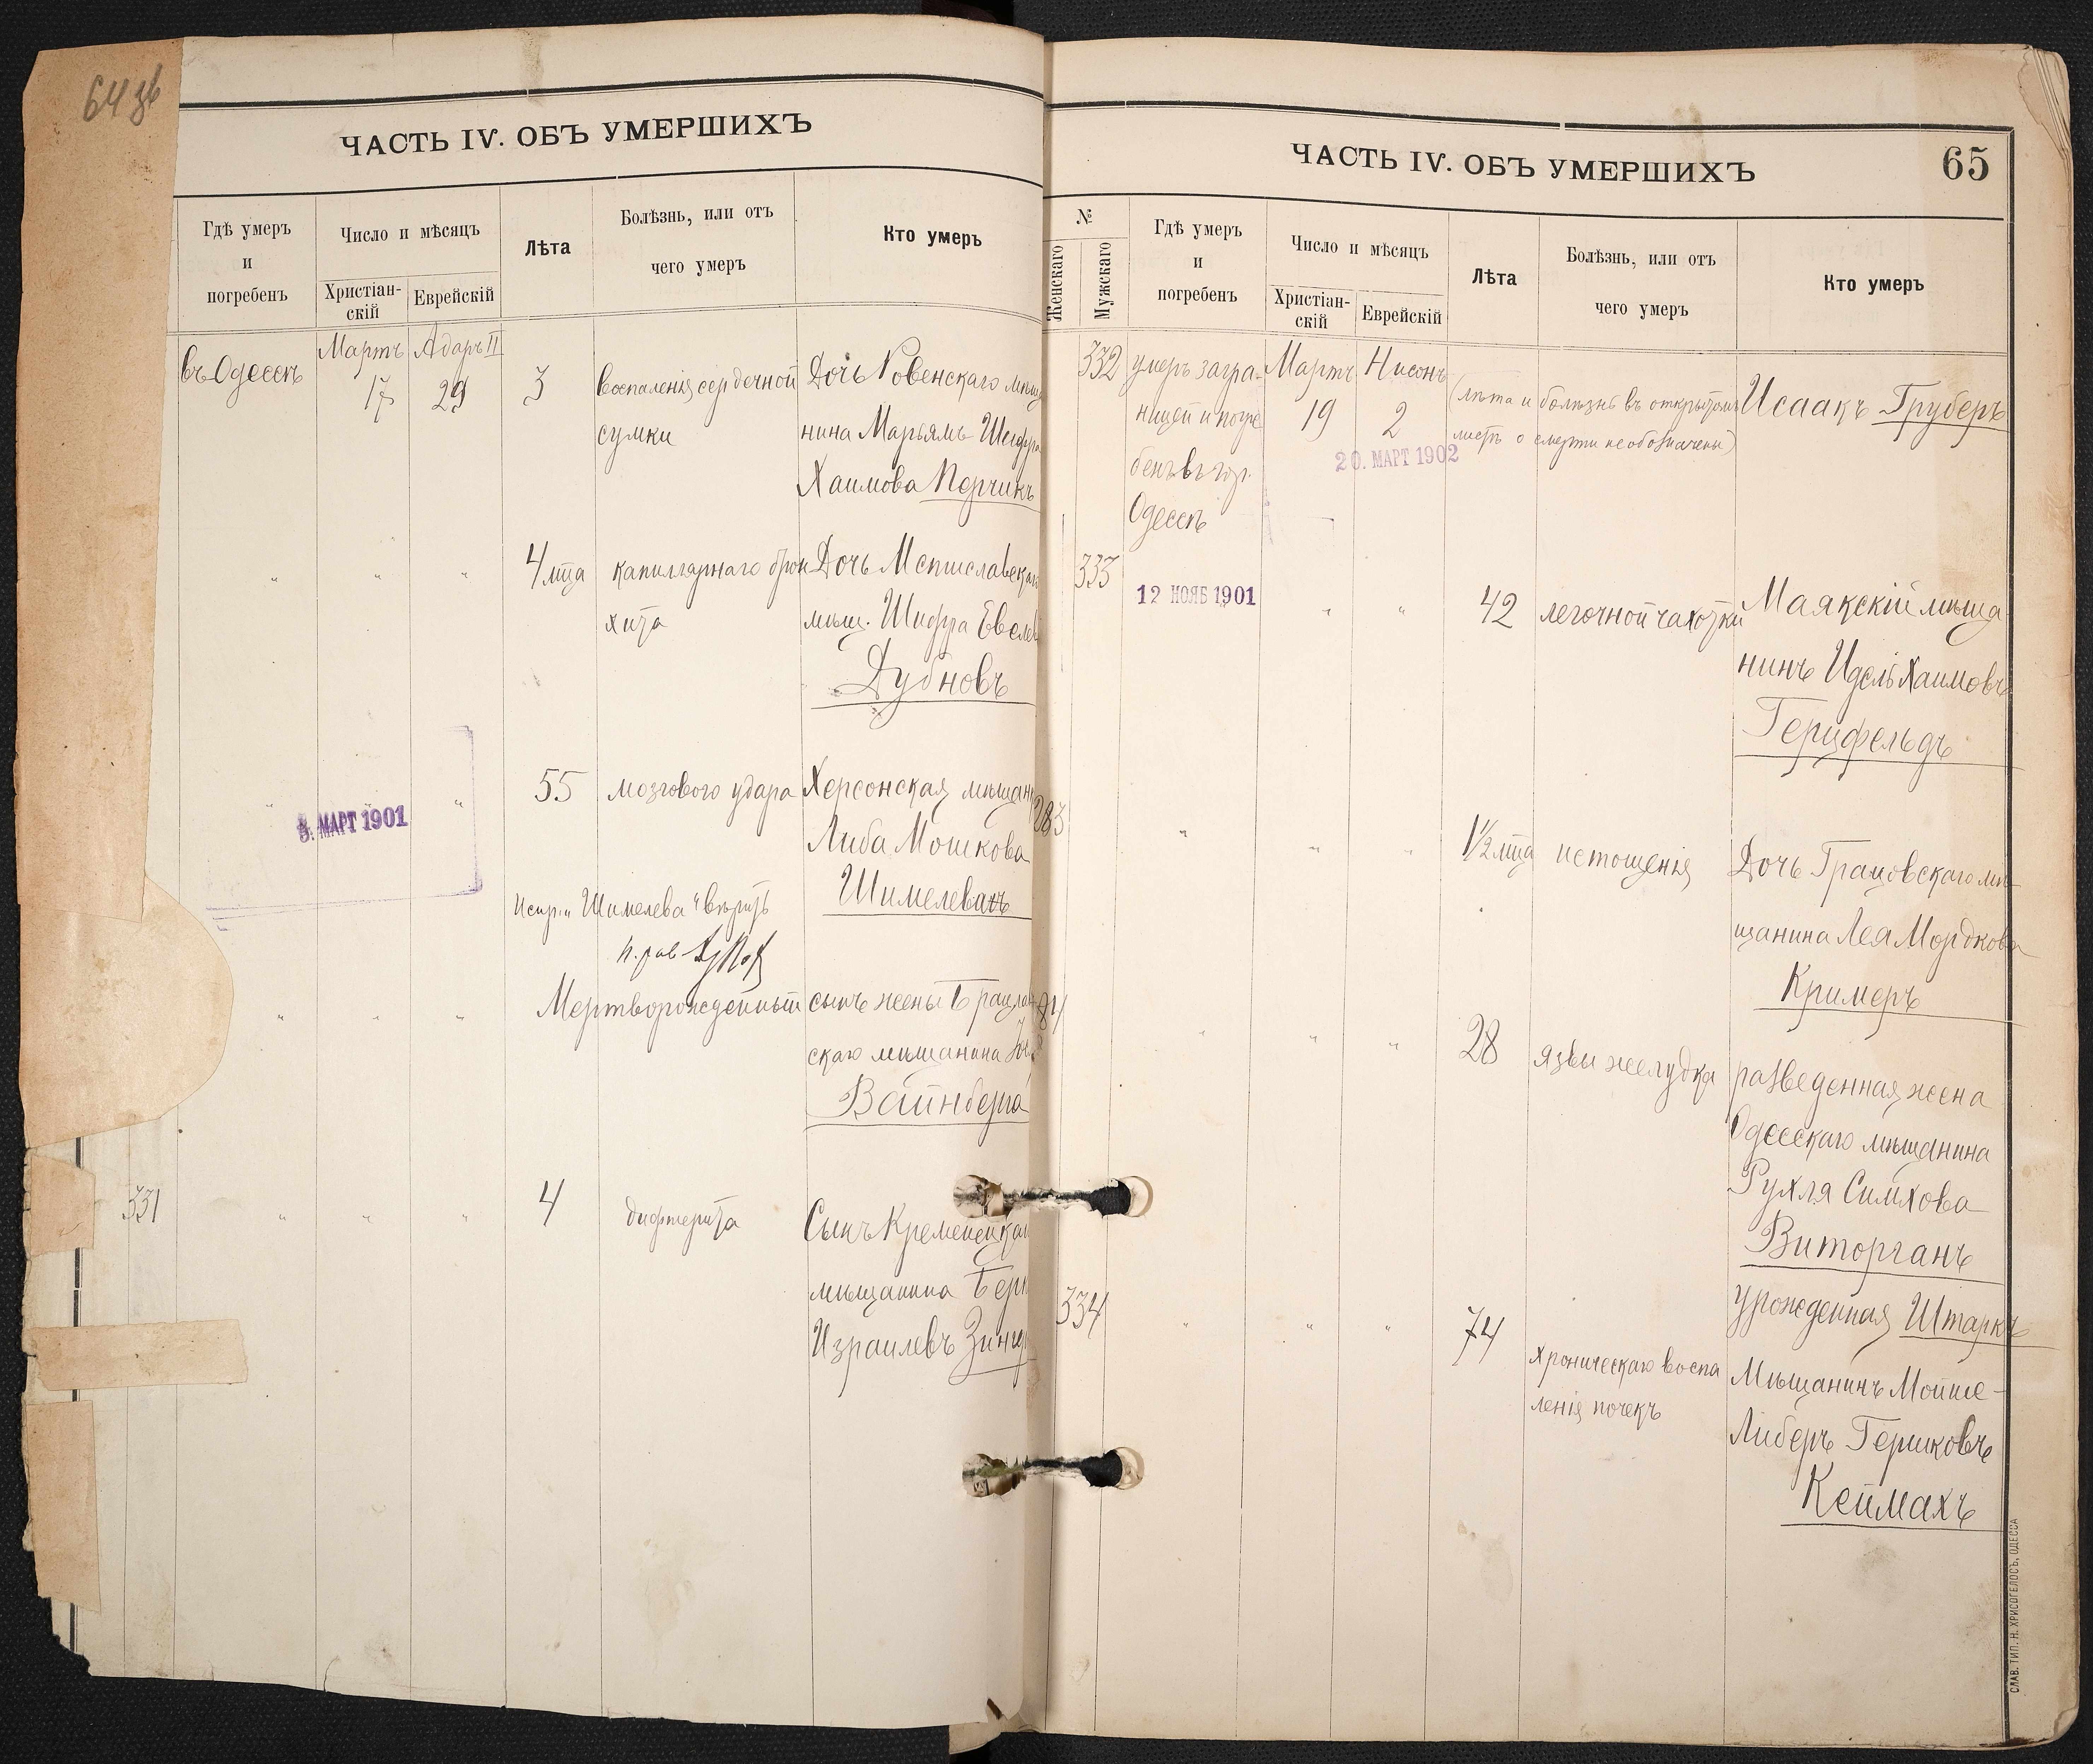 64 зв
ЧАСТЬ IV. ОБЪ УМЕРШИХЪ
Гдѣ умеръ
и
погребенъ
Число и мѣсяцъ
Христіан-
скій
Еврейскій
Лѣта
Болѣзнь, или отъ
чего умеръ
Кто умеръ
въ Одессѣ
Мартъ
17
Адаръ II
29
3
воспаленія сердечной
сумки
Дочь Ровенскаго мѣща
нина Марьямъ Шейфра
Хаимова Перчикъ
" " "
4 мца
капиллярнаго брон
хита
Дочь Мстиславскаго
мѣщ. Шифра Евелев
Дубновъ
" " "
55
мозгового удара
Херсонская мѣщан
Либа Мошкова
Шимелева
8. МАРТ 1901
Испр. "Шимелева" вѣрить
п. рав
" " "
Мертворожденный сынъ жены Брацлав
скаго мѣщанина
Вайнберга
331
" " "
4
дифтерита
Сынъ Кременецкаго
мѣщанина Берк
Израилевъ Зингер
ЧАСТЬ IV. ОБЪ УМЕРШИХЪ
65
№
Женскаго
Мужскаго
Гдѣ умеръ
и
погребенъ
Число и мѣсяцъ
Христіан-
скій
Еврейскій
Лѣта
Болѣзнь, или отъ
чего умеръ
Кто умеръ
332
умеръ загра-
ницей и погре
бенъ въ гор.
Одессѣ
Мартъ
19
Нисонъ
2
20. МАРТ 1902
(лѣта и болѣзнь въ открытомъ
листѣ о смерти не обозначены)
Исаакъ Груберъ
333
12 НОЯБ 1901
" "
42
легочной чахотки
Маякскій мѣща
нинъ Идель Хаимовъ
Герцфельдъ
283
" " "
1½ мца
истощенія
Дочь Грацовскаго мѣ-
щанина Лея Мордкова
Кримеръ
284
" " "
28
язвы желудка
разведенная жена
Одесскаго мѣщанина
Рухля Симхова
Виторганъ
урожденная Штаркъ
334
" " "
74
хроническаго воспа
ленія почекъ
Мѣщанинъ Мойше-
Либеръ Гершковъ
Кеймахъ
СЛАВ. ТИП. Н. ХРИСОГЕЛОСЪ, ОДЕССА